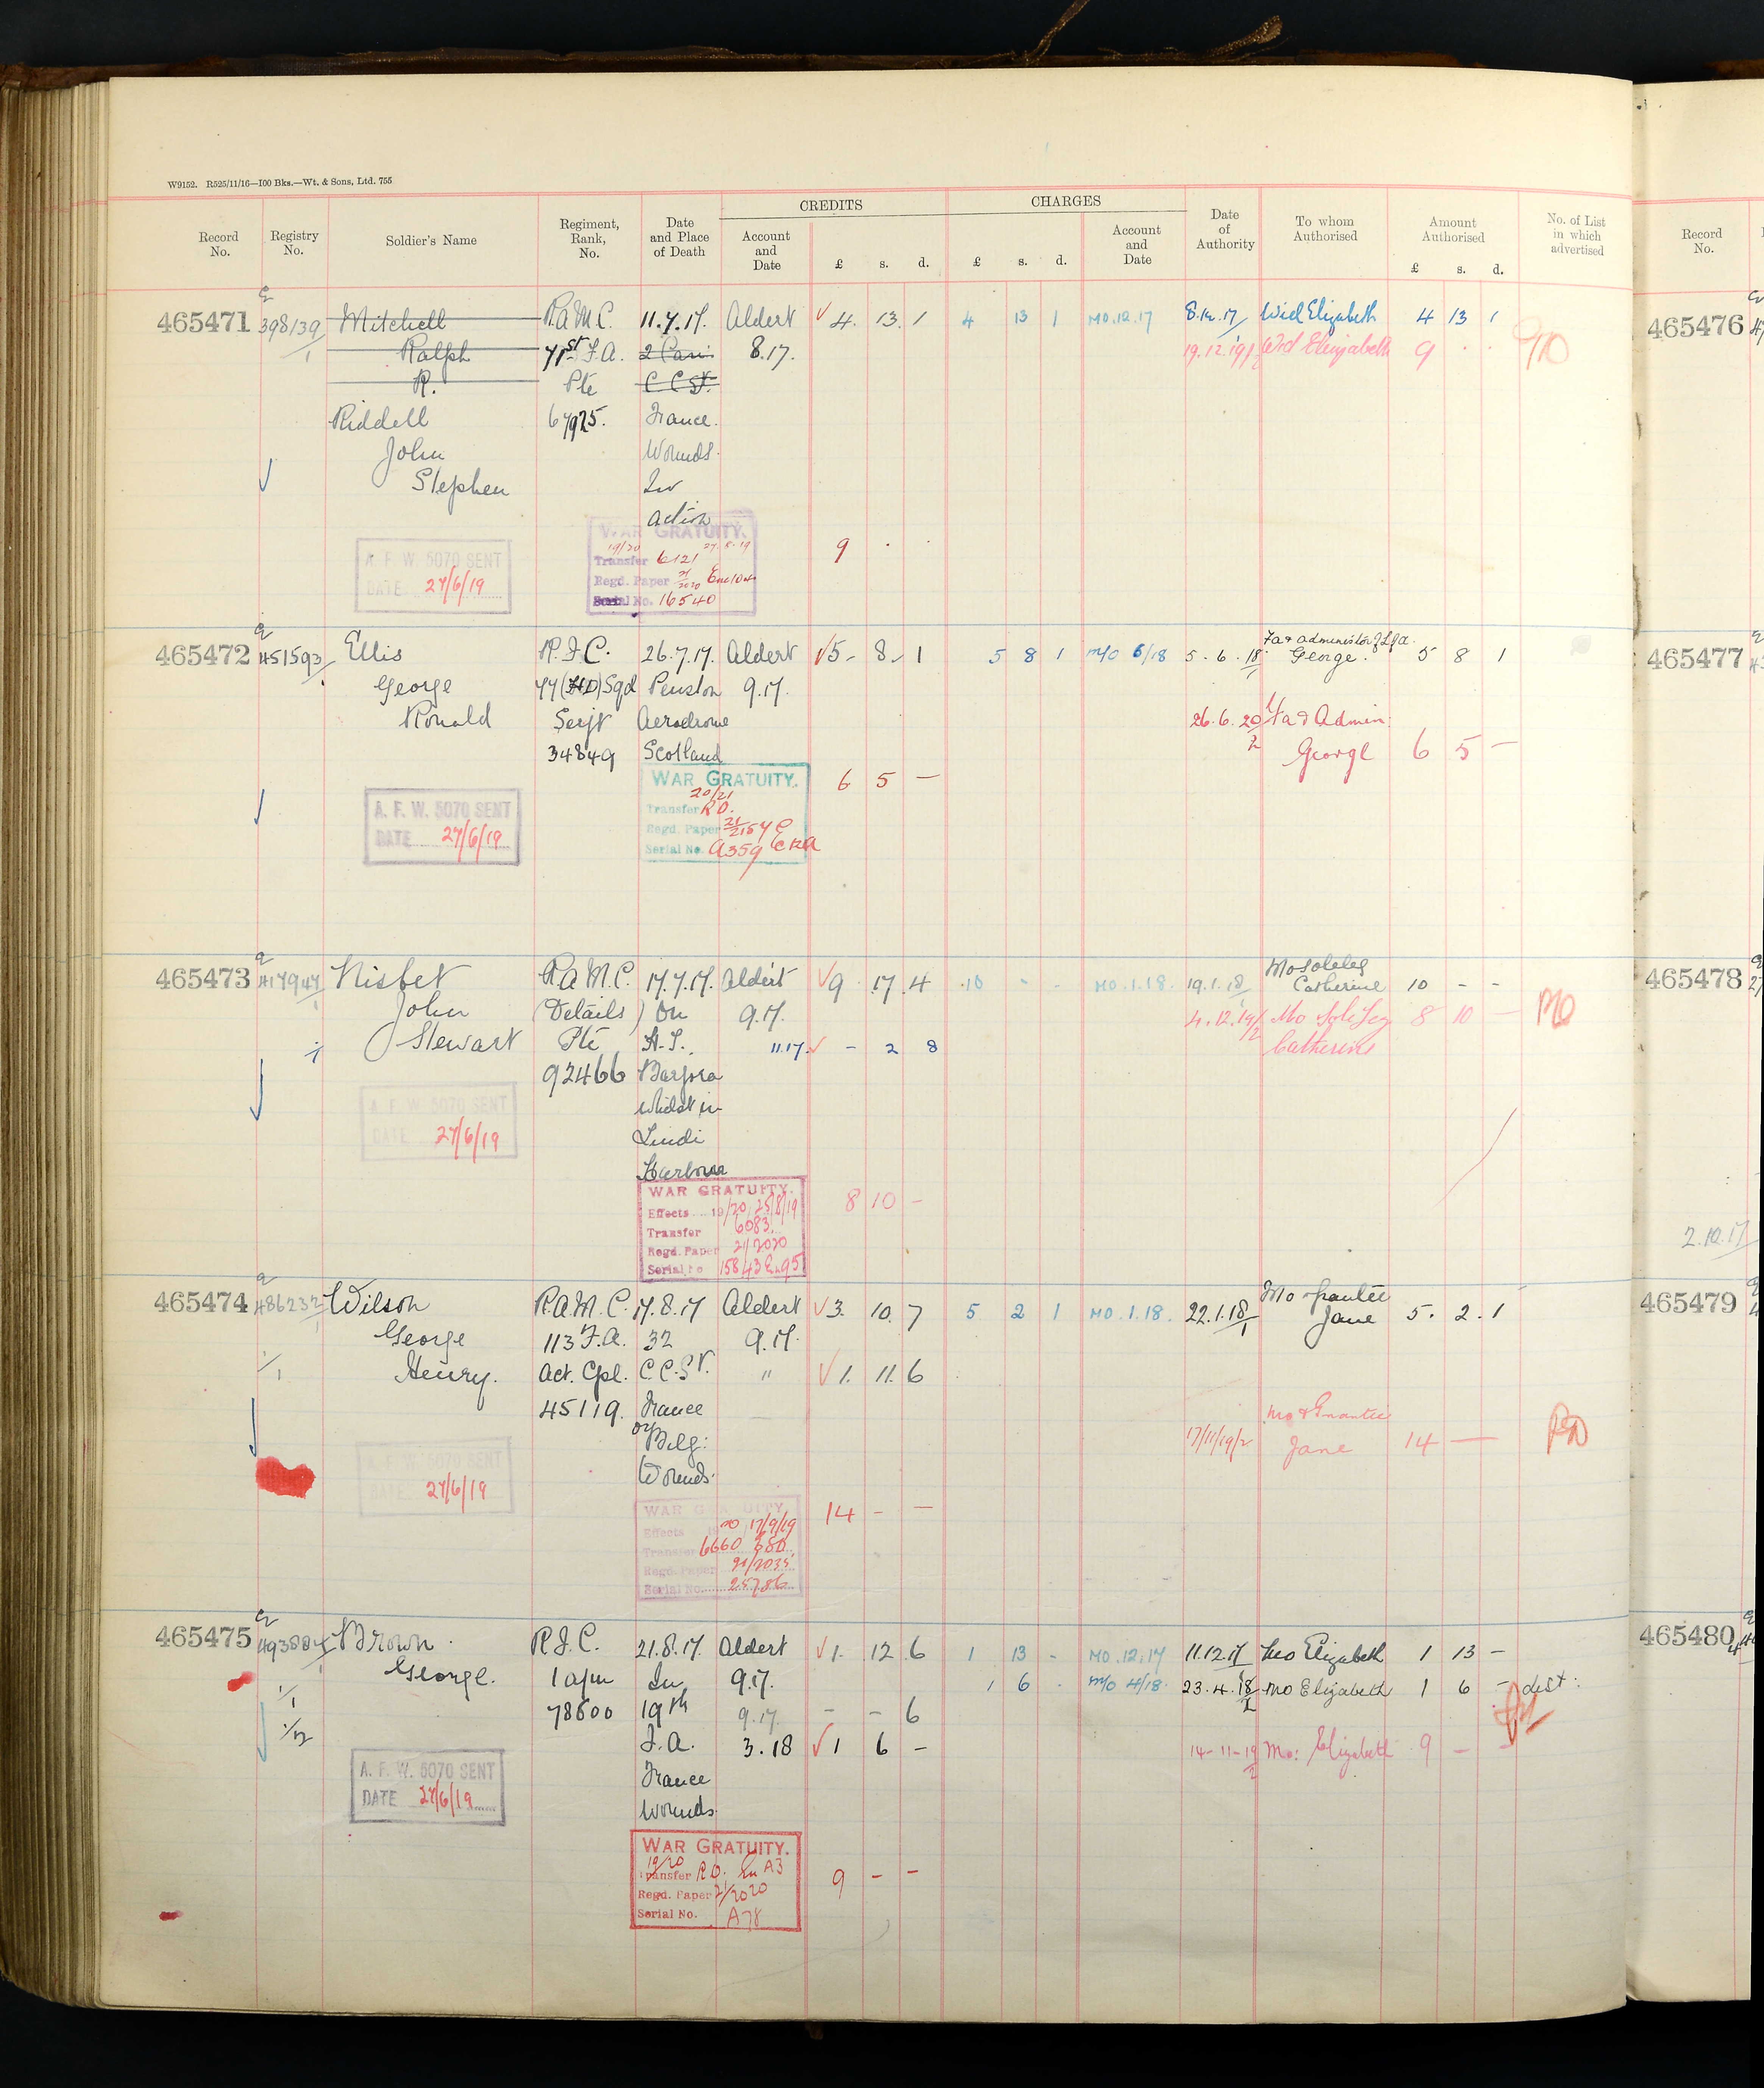 W9152. R525/11/16—100 Bks.—Wt. & Sons, Ltd. 755
CREDITS CHARGES
Record No. Registry No. Soldier's Name Regiment, Rank, No. Date and Place of Death Account and Date £ s. d. £ s. d. Account and Date Date of Authority To whom Authorised Amount Authorised £ s. d. No. of List in which advertised Record No.
465471 398139/1 Mitchell R.A.M.C. 11.7.17. Aldert 4. 13. 1 4 13 1 MO.12.17 8.12.17 Wid Elizabeth 4 13 1 465476
Ralph 71st F.A. 2 Can: 8.17. 19.12.19/2 Wid Elizabeth 9 . .
R. Pte C C St.
Riddell 67925. France.
John Wounds.
Stephen In
action
WAR GRATUITY.
A. F. W. 5070 SENT 19/20 27.8.19 9 . .
DATE 27/6/19 Transfer 6121
Regd. Paper 21/2020
Serial No. 16540
465472 451593/1 Ellis R.F.C. 26.7.17. Aldert 5 8 1 5 8 1 M/O 6/18 5.6.18 Fa & Administor of L/a. George. 5 8 1 465477
George 77(HD)Sqd Penston 9.17.
Ronald Serjt Aerodrome 26.6.20/2 Fa & Admin:
34849 Scotland George 6 5 —
WAR GRATUITY. 6 5 —
20/21
A. F. W. 5070 SENT Transfer RO.
DATE 27/6/19 Regd. Paper
Serial No. A359
465473 417947/1 Nisbet R.A.M.C. 17.7.17. Aldert 9 17 4 10 - - MO.1.18. 19.1.18 Mo sole leg Catherine 10 - - 465478
John (Details) On 9.17. 4.12.19/2 Mo Sole Leg 8 10 — MO
Stewart Pte H.S. 11.17. - 2 8 Catherine
92466 Barjora
whilst in
A. F. W. 5070 SENT Lindi
DATE 27/6/19 Harbour
WAR GRATUITY. 8 10 —
Effects 19/20 25/8/19
Transfer 6083.
Regd. Paper 21/2020 2.10.17
Serial No 15843
465474 486232/1 Wilson R.A.M.C. 17.8.17 Aldert 3. 10. 7 5 2 1 MO.1.18. 22.1.18/1 Mo & grantee Jane 5. 2. 1 465479
George 113 F.A. 32 9.17.
1/1 Henry. Act. Cpl. C.C.St. " 1. 11. 6
45119. France
or Mo & Grantee
Belg: 17/11/19/2 Jane 14 —
A. F. W. 5070 SENT Wounds.
DATE 27/6/19
WAR GRATUITY. 14 - —
Effects 17/9/19
Transfer 6660
Regd. Paper 21/2035
Serial No. 25786
465475 Brown. R.F.C. 21.8.17. Aldert 1. 12 6 1 13 - MO.12.17 11.12.17 Mo Elizabeth 1 13 — 465480
George. 1 a/m In 9.17. 1 6 . M/O 4/18. 23.4.18/2 Mo Elizabeth 1 6 — dist:
1/1 78600 19th 9.17. - - 6
1/2 F.A. 3.18 1 6 — 14-11-19/2 Mo: Elizabeth 9 — -
A. F. W. 5070 SENT France
DATE 27/6/19 Wounds.
WAR GRATUITY.
19/20
Transfer RO. A3 9 - -
Regd. Paper 21/2020
Serial No. A78